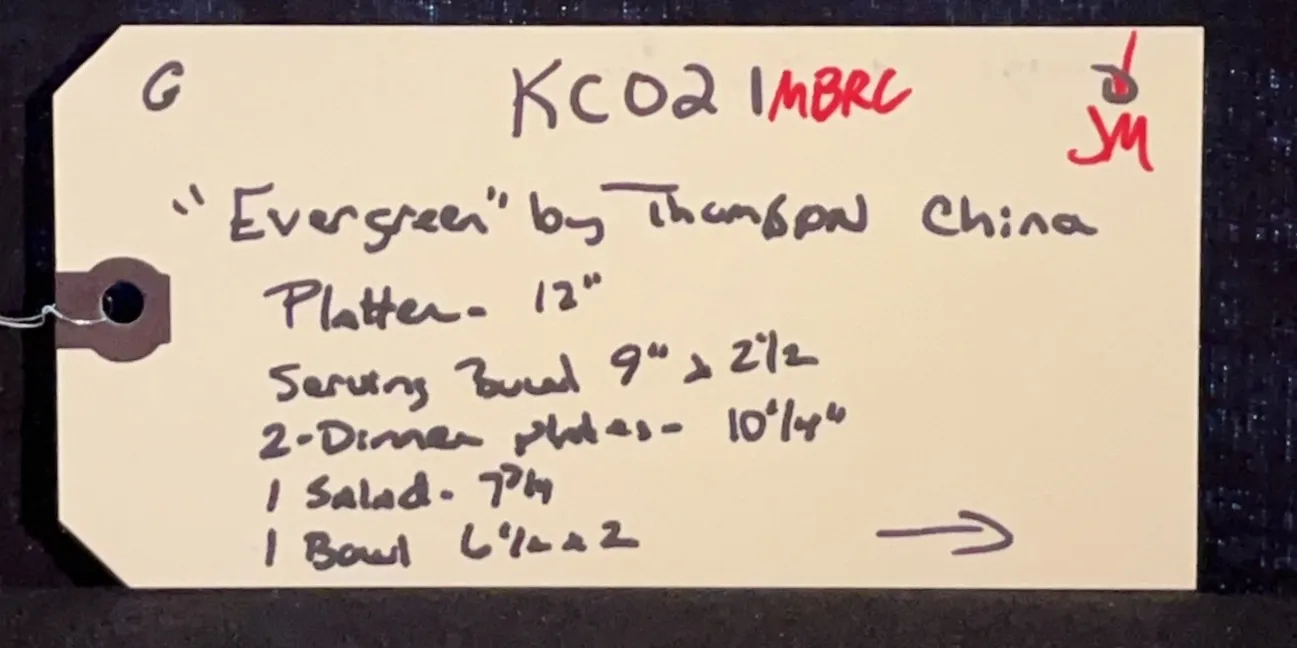 G KC021 MBRC
JM
"Evergreen" by Thomson China
Platter - 12"
Serving Bowl 9" x 2 1/2
2 - Dinner plates - 10 1/4"
1 Salad - 7 3/4
1 Bowl 6 x 2